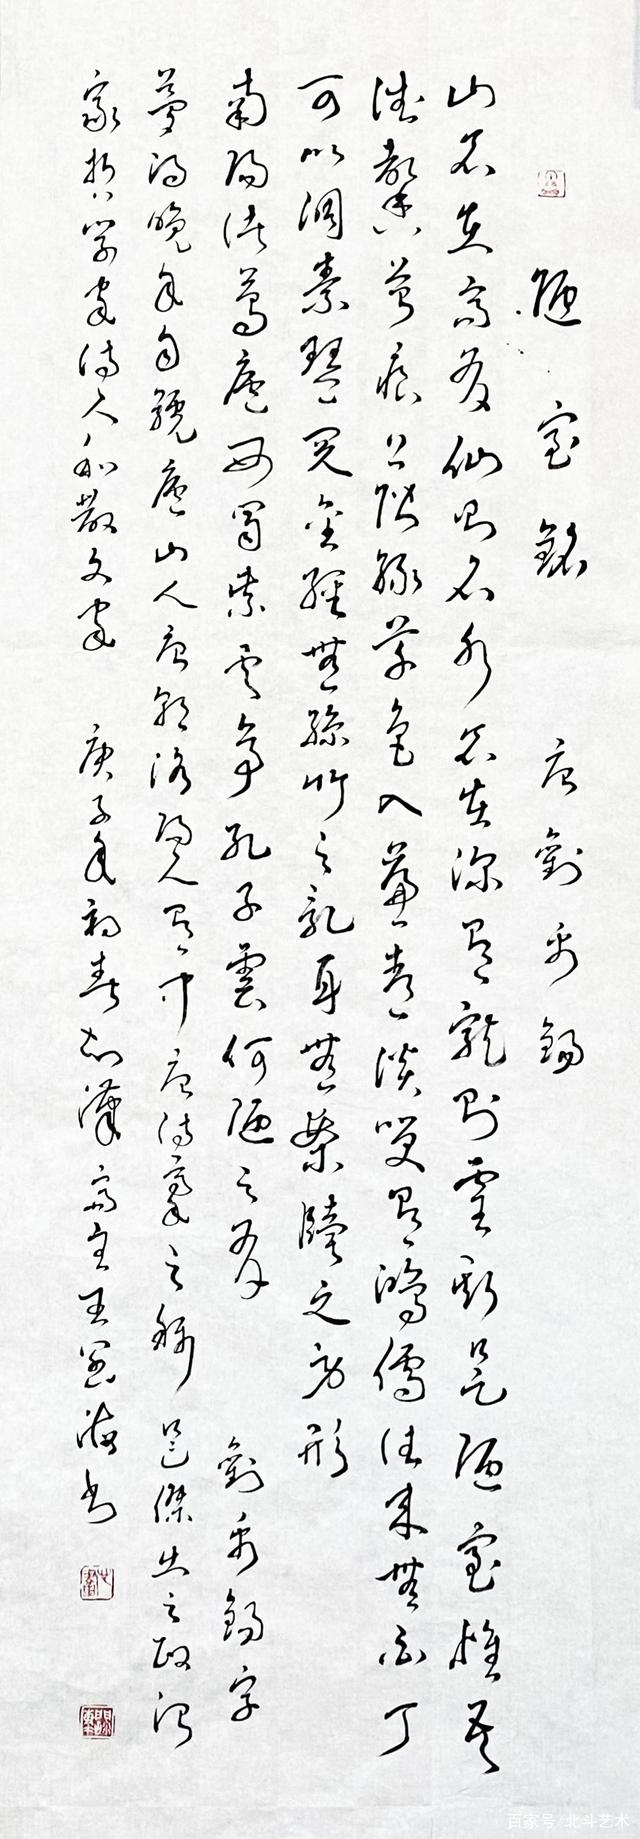 陋室銘 唐劉禹錫
山不在高有仙則名水不在深有龍則靈斯是陋室惟吾
德馨苔痕上階綠草色入簾青談笑有鴻儒往來無白丁
可以調素琴閱金經無絲竹之亂耳無案牘之勞形
南陽諸葛廬西蜀紫云亭孔子雲何陋之有 劉禹錫字
夢得晚年自號廬山人唐朝洛陽人有中唐詩豪之稱 是傑出之政治
家哲學家詩人和散文家 庚子年初春漢齋主王海書
百家号/北斗艺术